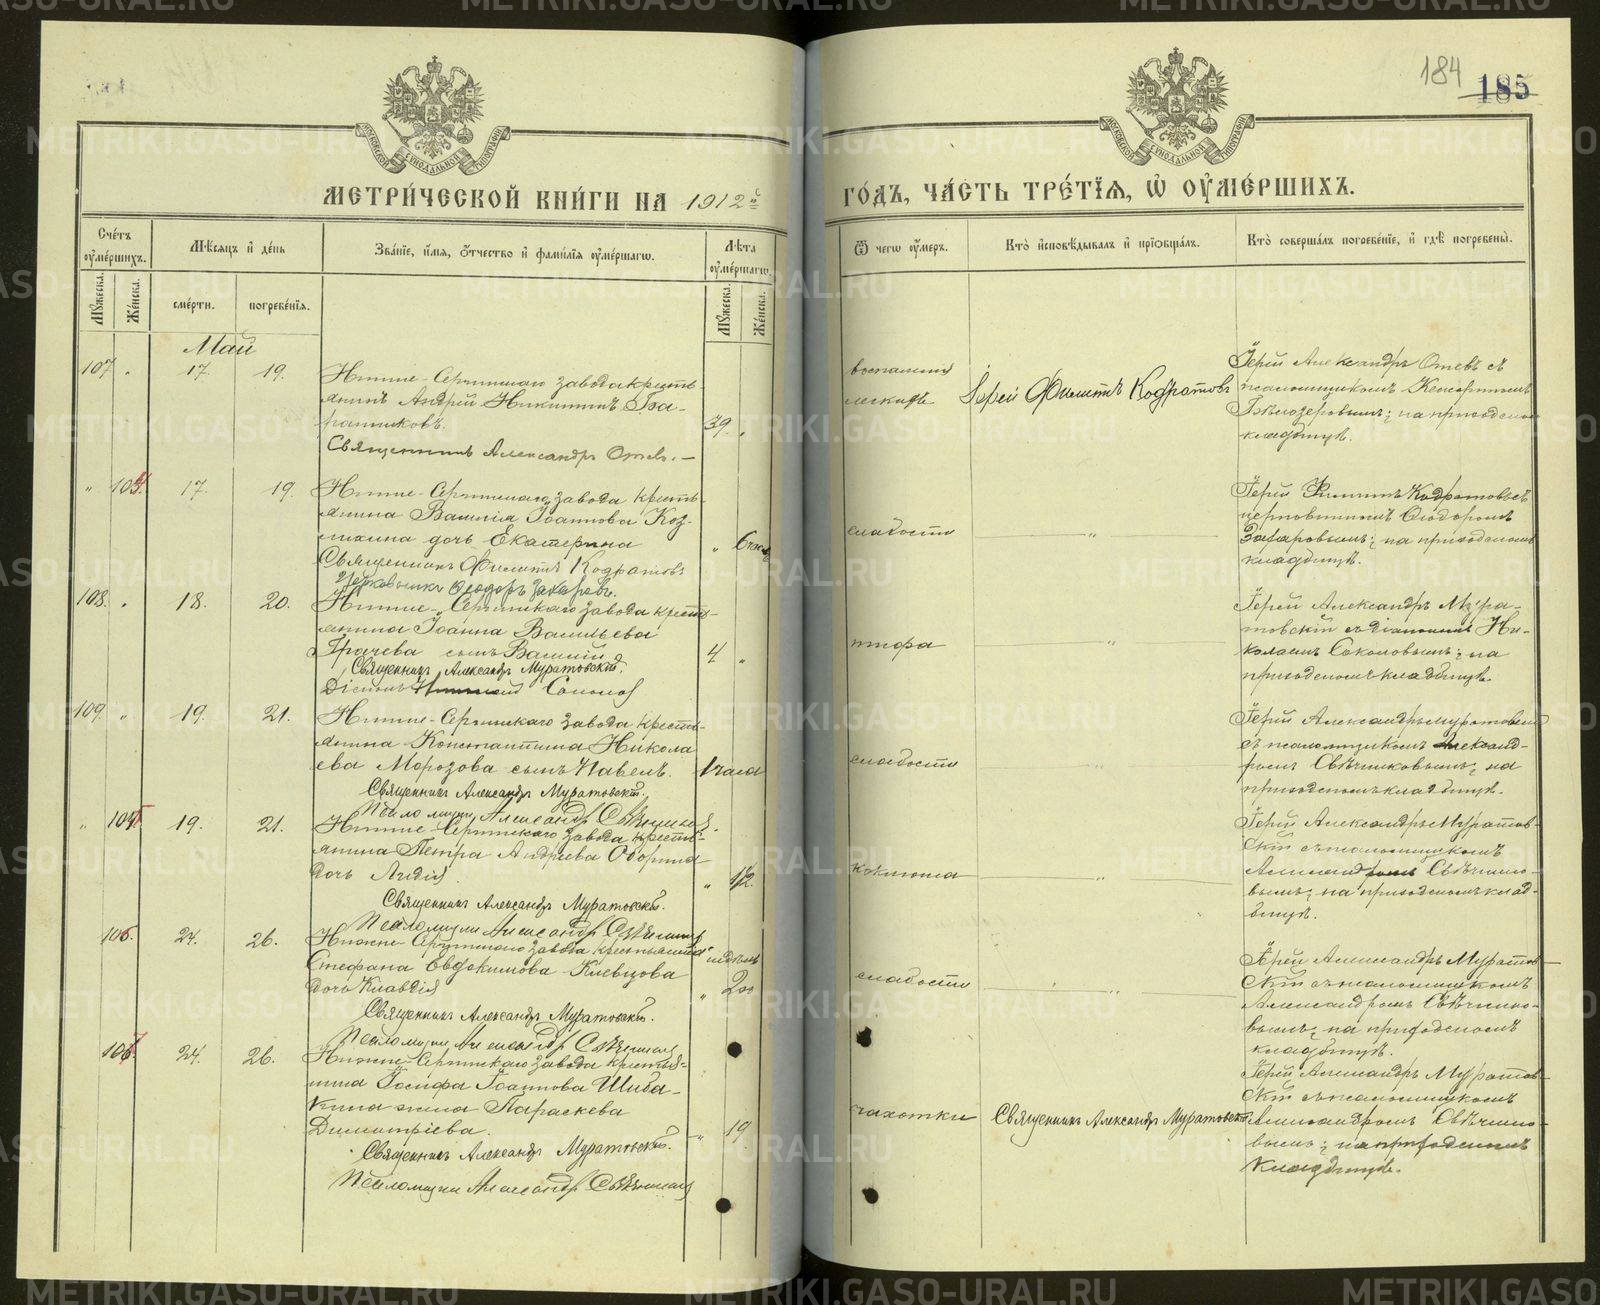 184
185
МОСКОВСКОЙ СѴНОДАЛЬНОЙ ТИПОГРАФІИ
МОСКОВСКОЙ СѴНОДАЛЬНОЙ ТИПОГРАФІИ
МЕТРИ́ЧЕСКОЙ КНИ́ГИ НА 1912й
ГО́ДЪ, ЧА́СТЬ ТРЕ́ТІѦ, Ѡ ОУМЕ́РШИХЪ.
Сче́тъ оуме́ршихъ.
Мѣ́сяцъ и де́нь
Зва́нїе, и́мя, о́тчество и фами́лїя оуме́ршагѡ.
Лѣ́та оуме́ршагѡ.
Ѿ чегѡ оу́меръ.
Кто̀ исповѣ́дывалъ и прїѡбща́лъ.
Кто̀ соверша́лъ погребе́нїе, и гдѣ̀ погребены̀.
Мꙋ́жеска.
Же́нска.
сме́рти.
погребе́нїя.
Мꙋ́жеска.
Же́нска.
Май
107 „ 17. 19.
Нижне-Сергинскаго завода кресть-
янинъ Андрей Никитинъ
39. „
Священникъ Александръ
воспаленія
легкихъ
Іерей Филиппъ Кодратовъ
Іерей Александръ съ
псаломщикомъ
Бѣлозеровымъ; на приходском
кладбищѣ.
„ 104. 17. 19.
Нижне-Сергинскаго завода кресть-
янина Василія Іоаннова Коз-
мина дочь Екатерина
„ 6 час
Священникъ Филиппъ Кодратовъ
Церковникъ Ѳеодоръ Захаровъ.
слабости
„
Іерей Филиппъ Кодратовъ съ
церковникомъ Ѳеодоромъ
Захаровымъ; на приходскомъ
кладбищѣ.
108. „ 18. 20.
Нижне-Сергинскаго завода кресть-
янина Іоанна Васильева
Грачева сынъ Василій
4 „
Священникъ Александръ Муратовскій.
Діаконъ Соколов
тифа
„
Іерей Александръ Мура-
товскій съ діакономъ Ни-
колаемъ Соколовымъ; на
приходскомъ кладбищѣ.
109. „ 19. 21.
Нижне-Сергинскаго завода кресть-
янина Константина Никола
ева Морозова сынъ Павелъ.
1 часа
Священникъ Александръ Муратовскій.
Псаломщик Александр Свѣчников.
слабости
„
Іерей Александръ Муратовскій
съ псаломщикомъ Александ-
ромъ Свѣчниковымъ; на
приходскомъ кладбищѣ.
„ 105. 19. 21.
Нижне-Сергинскаго завода кресть-
янина Петра Андреева Оборина
дочь Лидія.
„ 1/2.
Священникъ Александръ Муратовскій.
Псаломщик Александр Свѣчников
коклюша
„
Іерей Александръ Муратов-
скій съ псаломщикомъ
Александромъ Свѣчнико-
вымъ; на приходскомъ клад-
бищѣ.
106. 24. 26.
Нижне-Сергинскаго завода крестьянина
Стефана Евдокимова Клевцова
дочь Клавдія
недѣль
„ 2
Священникъ Александръ Муратовскій.
Псаломщик Александр Свѣчников
слабости
„
Іерей Александръ Муратов-
скій съ псаломщикомъ
Александромъ Свѣчнико-
вымъ; на приходскомъ
кладбищѣ.
107. 24. 26.
Нижне-Сергинскаго завода крестья-
нина Іосифа Іоаннова Шиба-
кина жена Параскева
Димитріева.
„ 19
Священникъ Александръ Муратовскій.
Псаломщик Александр Свѣчников
чахотки
Священникъ Александръ Муратовскій
Іерей Александръ Муратов-
скій съ псаломщикомъ
Александромъ Свѣчнико-
вымъ; на приходскомъ
кладбищѣ.
METRIKI.GASO-URAL.RU